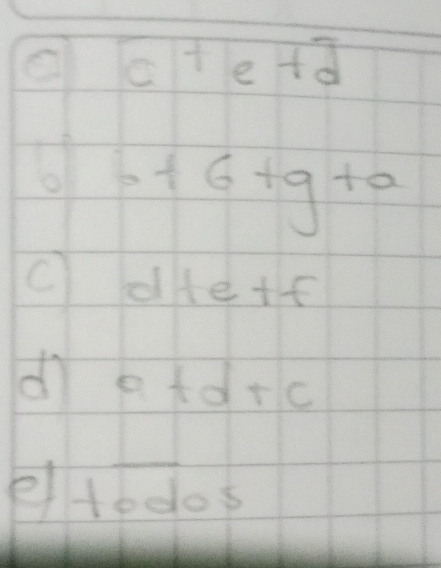 a) a + e + d
b) b + G + g + a
c) d + e + f
d) a + d + c
e) todos